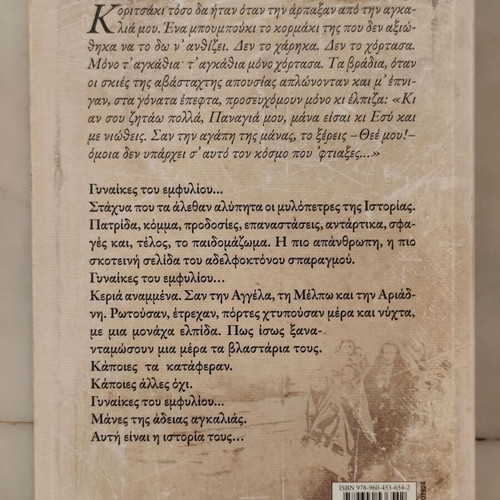 Κοριτσάκι τόσο δα ήταν όταν την άρπαξαν από την αγκα-
λιά μου. Ένα μπουμπούκι το κορμάκι της που δεν αξιώ-
θηκα να το δω ν' ανθίζει. Δεν το χάρηκα. Δεν το χόρτασα.
Μόνο τ' αγκάθια· τ' αγκάθια μόνο χόρτασα. Τα βράδια, όταν
οι σκιές της αβάσταχτης απουσίας απλώνονταν και μ' έπνι-
γαν, στα γόνατα έπεφτα, προσευχόμουν μόνο κι έλπιζα: «Κι
αν σου ζητάω πολλά, Παναγιά μου, μάνα είσαι κι Εσύ και
με νιώθεις. Σαν την αγάπη της μάνας, το ξέρεις –Θεέ μου!–
όμοια δεν υπάρχει σ' αυτό τον κόσμο που 'φτιαξες...»
Γυναίκες του εμφυλίου...
Στάχυα που τα άλεθαν αλύπητα οι μυλόπετρες της Ιστορίας.
Πατρίδα, κόμμα, προδοσίες, επαναστάσεις, αντάρτικα, σφα-
γές και, τέλος, το παιδομάζωμα. Η πιο απάνθρωπη, η πιο
σκοτεινή σελίδα του αδελφοκτόνου σπαραγμού.
Γυναίκες του εμφυλίου...
Κεριά αναμμένα. Σαν την Αγγέλα, τη Μέλπω και την Αριάδ-
νη. Ρωτούσαν, έτρεχαν, πόρτες χτυπούσαν μέρα και νύχτα,
με μια μονάχα ελπίδα. Πως ίσως ξανα-
νταμώσουν μια μέρα τα βλαστάρια τους.
Κάποιες τα κατάφεραν.
Κάποιες άλλες όχι.
Γυναίκες του εμφυλίου...
Μάνες της άδειας αγκαλιάς.
Αυτή είναι η ιστορία τους...
ISBN 978-960-453-654-2